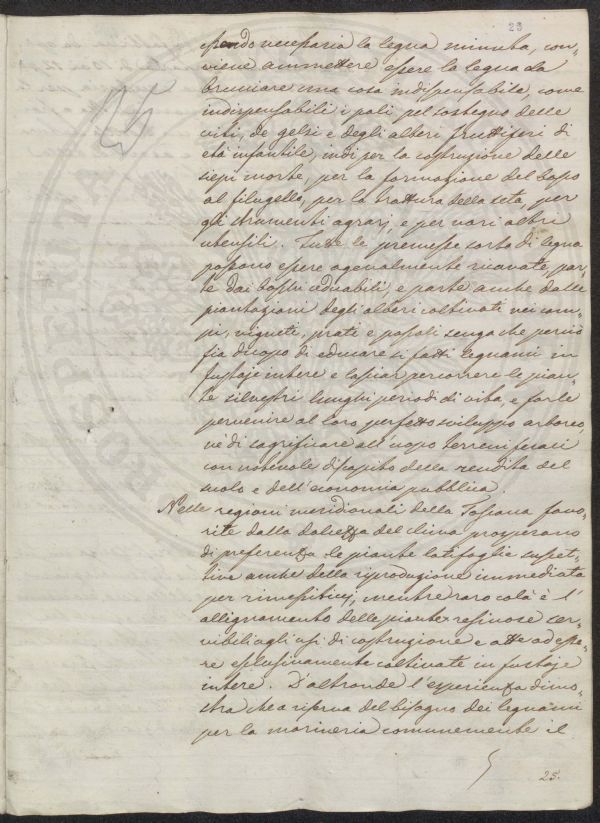 23
25
essendo necessaria la legna minuta, con-
viene ammettere essere la legna da
bruciare una cosa indispensabile, come
indispensabili i pali pel sostegno delle
viti, de gelsi e degli alberi fruttiferi di
età infantile, indi per la costruzione delle
siepi morte, per la formazione del bosco
al filugello, per la trattura della seta, per
gli strumenti agrarj e per vari altri
utensili. Tutte le premesse sorta di legna
possono essere agevolmente ricavate, par-
te dai boschi cedui, e parte anche dalle
piantazioni degli alberi coltivati nei cam-
pi, vigneti, prati e pascoli senza che perciò
sia d'uopo di educare sì fatti legnami in
fustaje intere e lasciar percorrere le pian-
te silvestri lunghi periodi di vita, e farle
pervenire al loro perfetto sviluppo arboreo,
nè di sagrificare all'uopo terreni feraci
con notevole discapito della rendita del
suolo e dell'economia pubblica
Nelle regioni meridionali della Toscana favo-
rite dalla dolcezza del clima prosperano
di preferenza le piante latifoglie suscet-
tive anche della riproduzione immediata
per rimessiticcj, mentre raro colà è l'
allignamento delle piante resinose ser-
vibili agli usi di costruzione e atte ad esse-
re esclusivamente coltivate in fustaje
intere. D'altronde l'esperienza dimo-
stra che a riserva del bisogno dei legnami
per la marineria comunemente il
25.
PROSPERITAS